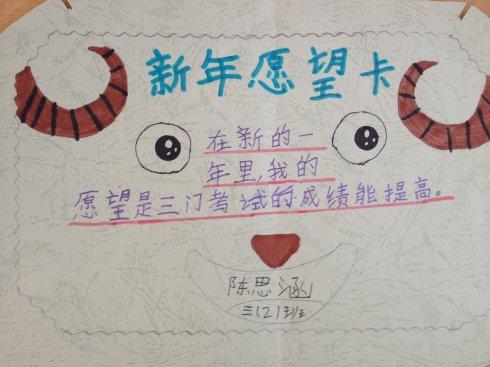 新年愿望卡
在新的一
年里,我的
愿望是三门考试的成绩能提高。
陈思涵
三(2)班